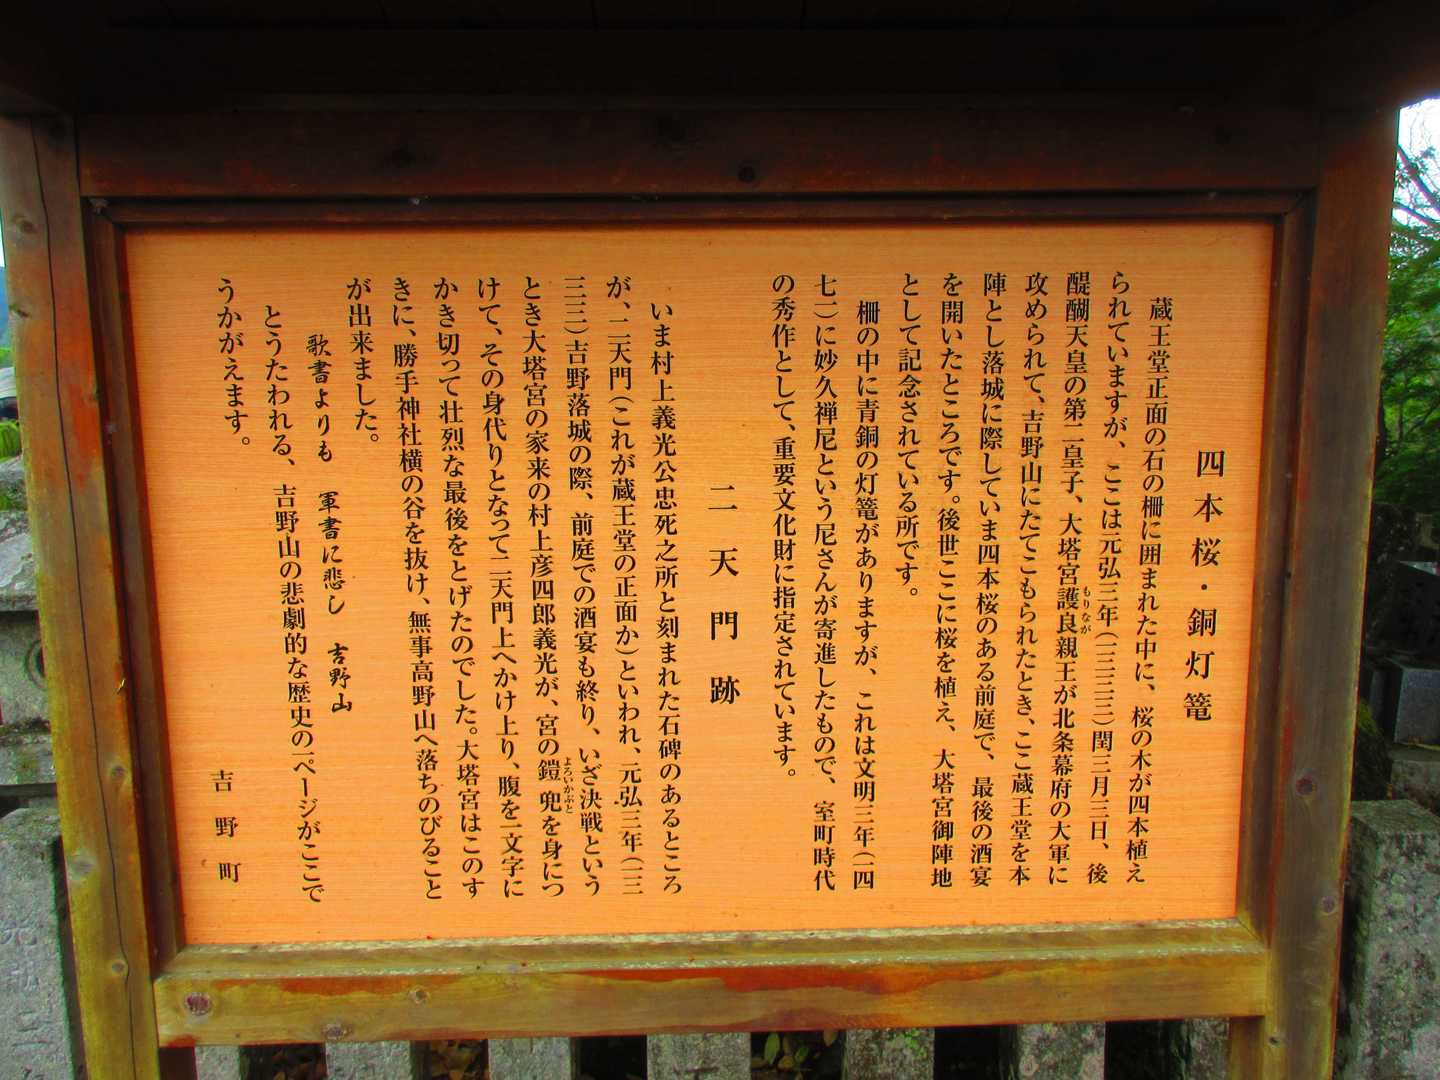 四本桜・銅灯篭
蔵王堂正面の石の柵に囲まれた中に、桜の木が四本植え
られていますが、ここは元弘三年（一三三三）閏三月三日、後
醍醐天皇の第二皇子、大塔宮護良親王が北条幕府の大軍に
もりなが
攻められて、吉野山にたてこもられたとき、ここ蔵王堂を本
陣とし落城に際していま四本桜のある前庭で、最後の酒宴
を開いたところです。後世ここに桜を植え、大塔宮御陣地
として記念されている所です。
柵の中に青銅の灯篭がありますが、これは文明三年（一四
七一）に妙久禅尼という尼さんが寄進したもので、室町時代
の秀作として、重要文化財に指定されています。
二天門跡
いま村上義光公忠死之所と刻まれた石碑のあるところ
が、二天門（これが蔵王堂の正面か）といわれ、元弘三年（一三
三三）吉野落城の際、前庭での酒宴も終り、いざ決戦という
とき大塔宮の家来の村上彦四郎義光が、宮の鎧兜を身につ
よろいかぶと
けて、その身代りとなって二天門上へかけ上り、腹を一文字に
かき切って壮烈な最後をとげたのでした。大塔宮はこのす
きに、勝手神社横の谷を抜け、無事高野山へ落ちのびること
が出来ました。
歌書よりも 軍書に悲し 吉野山
とうたわれる、吉野山の悲劇的な歴史の一ページがここで
うかがえます。
吉野町